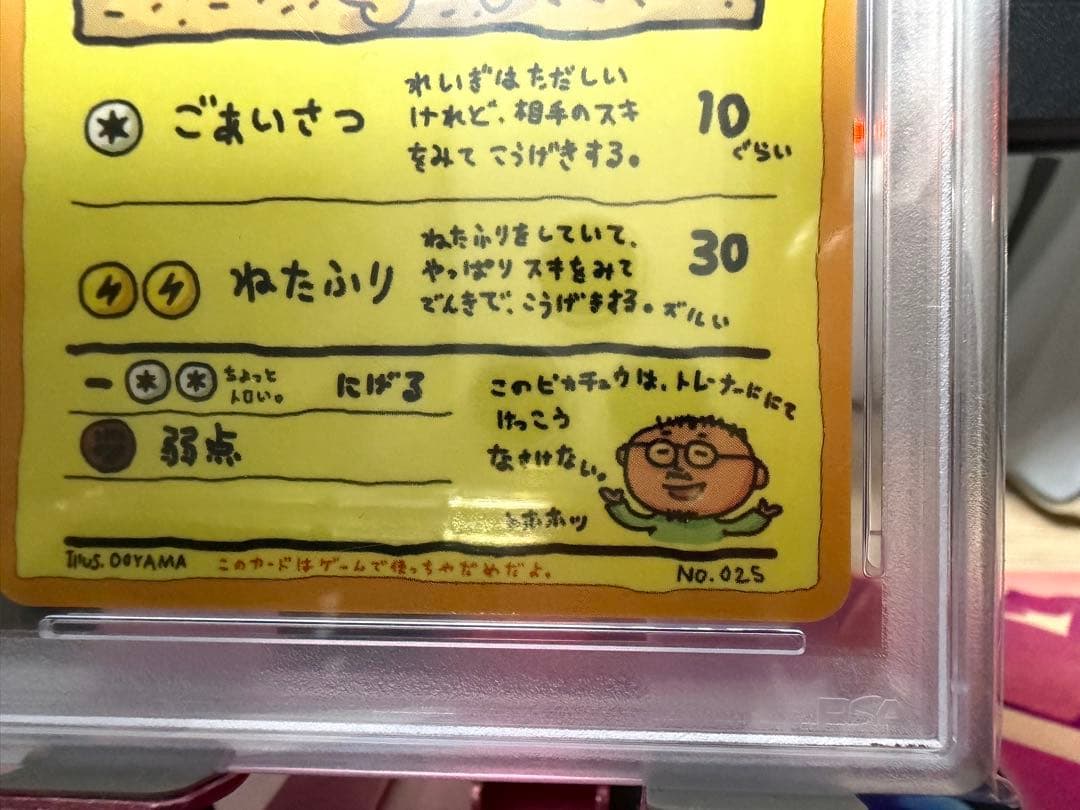 ごあいさつ
れいぎはただしい
けれど、相手のスキ
をみて こうげきする。
10
ぐらい
ねたふり
ねたふりをしていて、
やっぱり スキをみて
でんきで、こうげきする。ズルい
30
ー
ちょっと
トロい。
にげる
弱点
このピカチュウは、トレーナーににて
けっこう
なさけない。
トホホホッ
Illus. OOYAMA
このカードはゲームで使っちゃだめだよ。
NO. 025
PSA